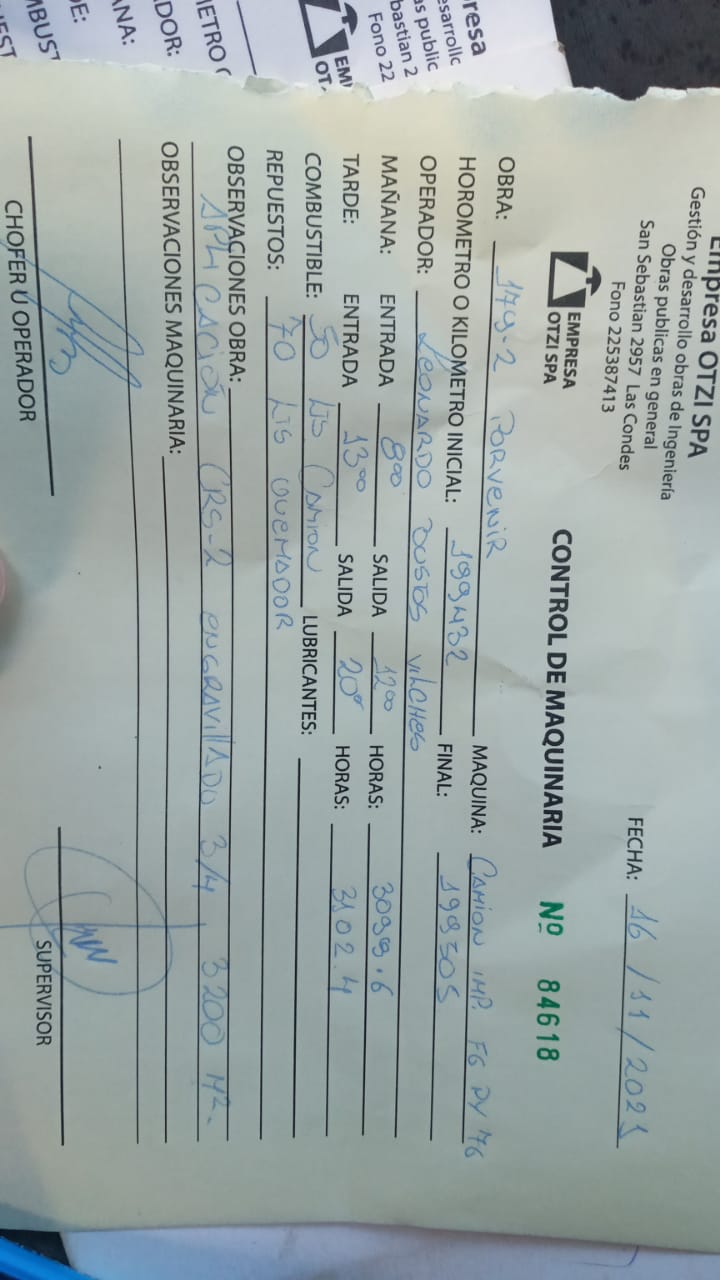 Empresa OTZI SPA
Gestión y desarrollo obras de Ingeniería
Obras publicas en general
San Sebastian 2957 Las Condes
Fono 225387413
FECHA: 16 / 11 / 2021
EMPRESA
OTZI SPA
CONTROL DE MAQUINARIA Nº 84618
OBRA: 179-2 PORVENIR MAQUINA: CAMION IMP. FG PY 76
HOROMETRO O KILOMETRO INICIAL: 199432 FINAL: 199505
OPERADOR: LEONARDO BUSTOS VILCHES
MAÑANA: ENTRADA 800 SALIDA 1200 HORAS: 3099.6
TARDE: ENTRADA 1300 SALIDA 20 HORAS: 3102.4
COMBUSTIBLE: 50 LTS CAMION LUBRICANTES:
REPUESTOS: 70 LTS QUEMADOR
OBSERVACIONES OBRA:
APLICACIÓN CRS-2 ENGRAVILLADO 3/4 3200 M2.
OBSERVACIONES MAQUINARIA:
CHOFER U OPERADOR
SUPERVISOR